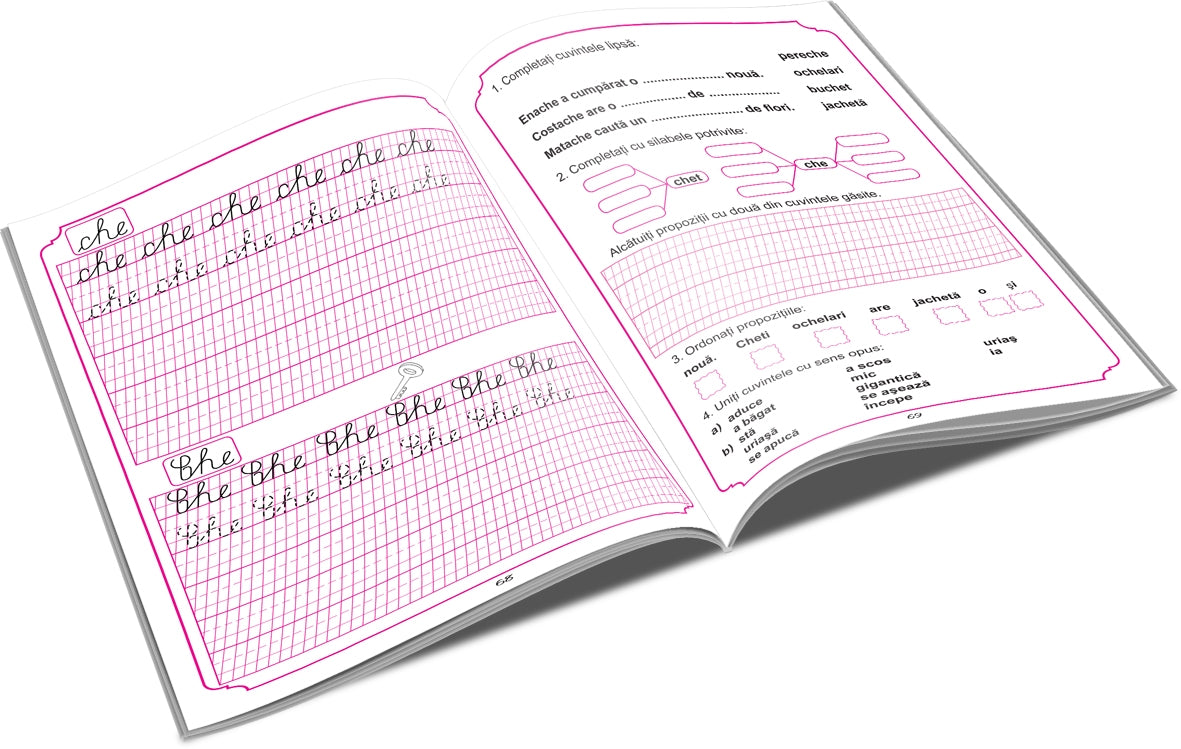 che
che che che che che che
che che che che che che
Che
Che Che Che Che Che Che
Che Che Che Che Che Che
68
1. Completați cuvintele lipsă:
Enache a cumpărat o ...................... nouă.
Costache are o ................. de ...................
Matache caută un ......................... de flori.
pereche
ochelari
buchet
jachetă
2. Completați cu silabele potrivite:
chet
che
Alcătuiți propoziții cu două din cuvintele găsite.
3. Ordonați propozițiile:
nouă. Cheti ochelari are jachetă o și
4. Uniți cuvintele cu sens opus:
a) aduce
a băgat
b) stă
uriașă
se apucă
a scos
mic
gigantică
se așează
începe
uriaș
ia
69